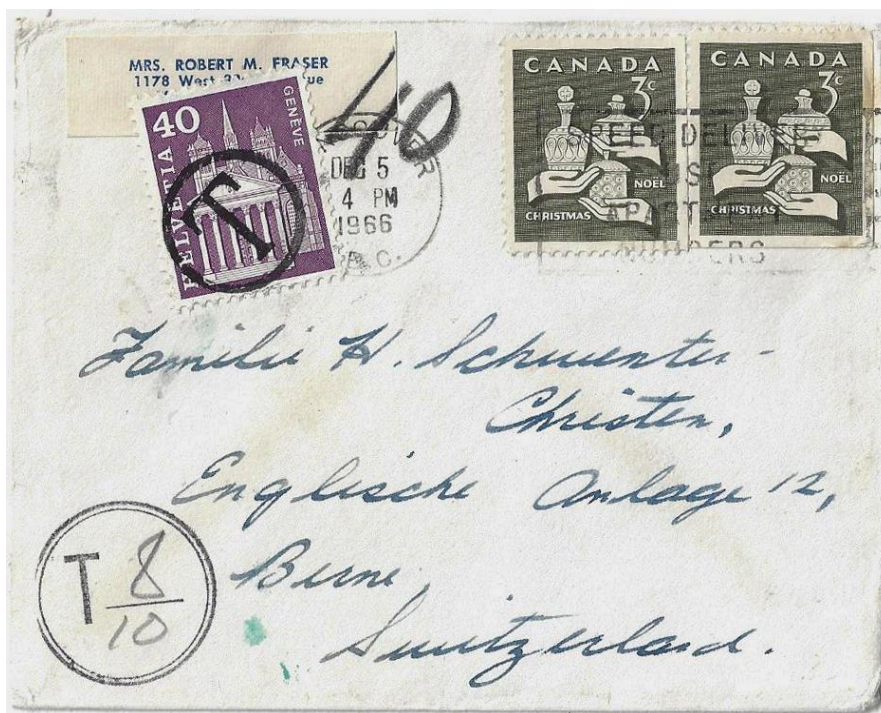 MRS. ROBERT M. FRASER
1178 West
40
HELVETIA
GENEVE
T
40
DEC 5
4 PM
1966
B.C.
CANADA
3c
NOËL
CHRISTMAS
CANADA
3c
NOËL
CHRISTMAS
SPEED DELIVERY
USE
APARTMENT
NUMBERS
Familie H. Schwenter-
Christen,
Englische Anlage 12,
Berne,
Switzerland.
T 8/10